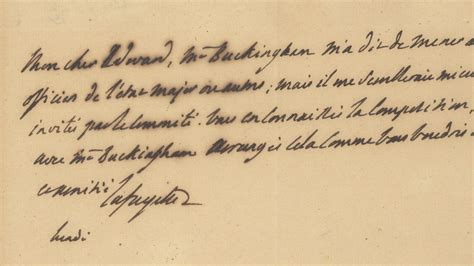 Mon cher Edward, Mr Buckingham m'a dit de mener a
officier de l'état major ou autres; mais il me Sembleroit mieu
invité par le Committé. Vous en connaittes la Compétition,
avec Mr Buckingham arrangés cela comme Vous voudrés
Lafayette
lundi